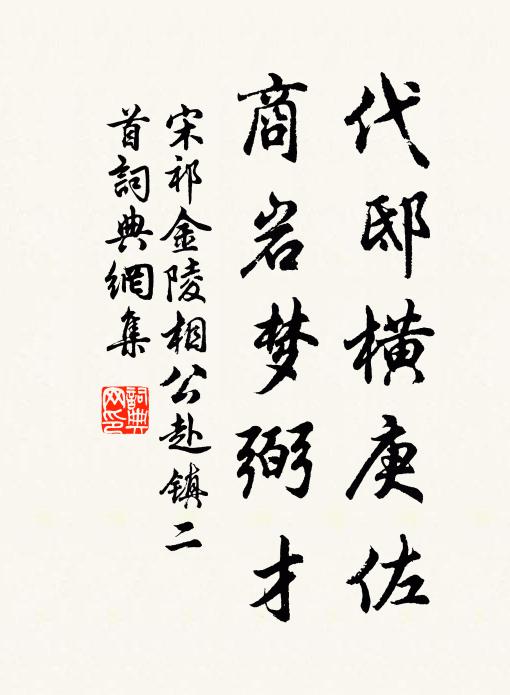 代邸横庚佐
商岩梦弼才
宋祁金陵相公赴镇二
首詞典網集
詞典
网印